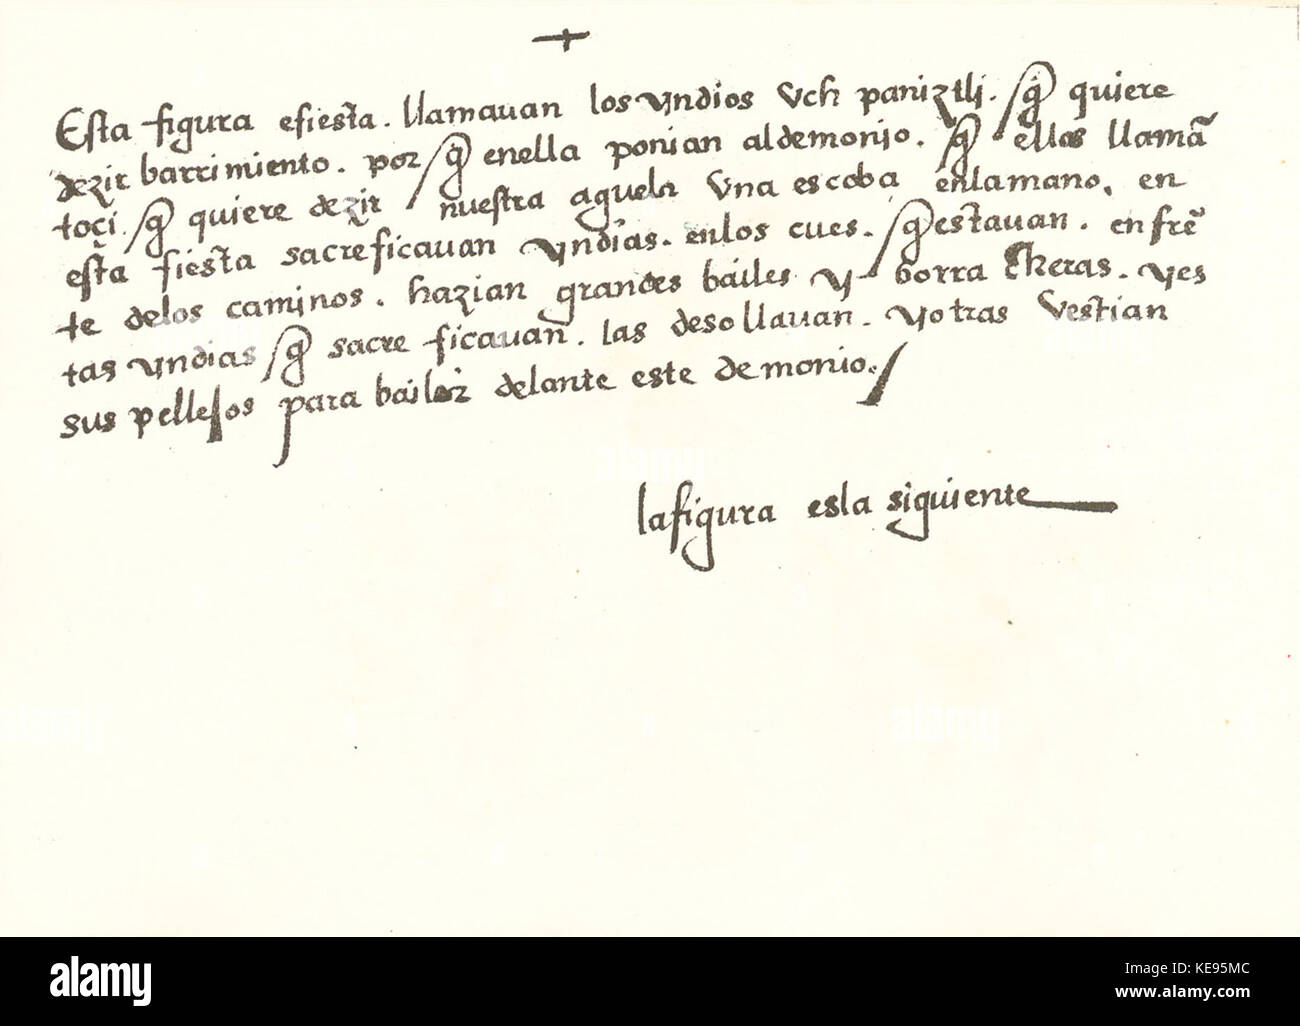 +
Esta figura efiesta. llamauan los yndios Vch paniztli. q̃ quiere
dezir barrimiento. por q̃ enella ponian aldemonio. q̃ ellos llamã
toçi. q̃ quiere dezir nuestra aguela Vna escoba enlamano. en
esta fiesta sacreficauan yndias. enlos cues. q̃ estauan. en frẽ
te delos caminos. hazian grandes bailes y borra cheras. yes
tas yndias q̃ sacre ficauan. las desollauan. yotras Vestian
sus pellejos para bailar delante este demonio./
lafigura esla siguiente
alamy
Image ID: KE95MC
www.alamy.com